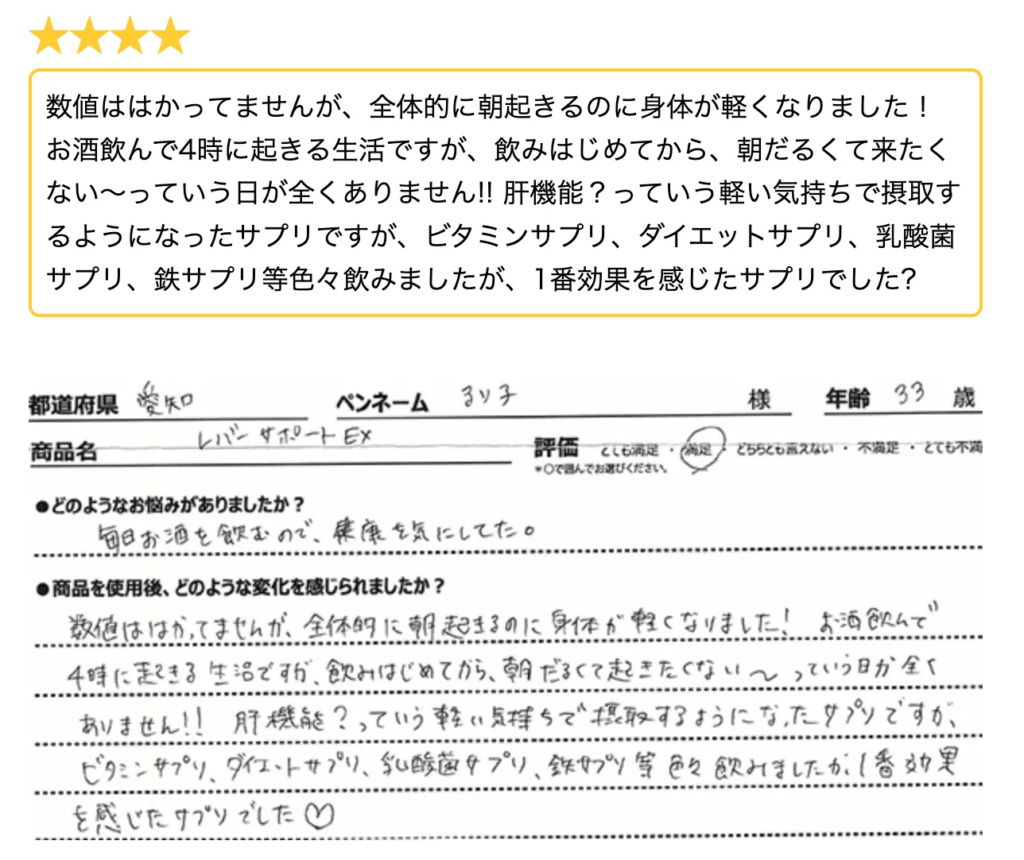 ★★★★
数値ははかってませんが、全体的に朝起きるのに身体が軽くなりました！
お酒飲んで4時に起きる生活ですが、飲みはじめてから、朝だるくて来たく
ない〜っていう日が全くありません!! 肝機能？っていう軽い気持ちで摂取す
るようになったサプリですが、ビタミンサプリ、ダイエットサプリ、乳酸菌
サプリ、鉄サプリ等色々飲みましたが、1番効果を感じたサプリでした?
都道府県 愛知 ペンネーム るり子 様 年齢 33 歳
商品名 レバーサポートEX 評価 とても満足・満足・どちらとも言えない・不満足・とても不満
*○で囲んでお選びください。
●どのようなお悩みがありましたか？
毎日お酒を飲むので、健康を気にしてた。
●商品を使用後、どのような変化を感じられましたか？
数値ははかってませんが、全体的に朝起きるのに身体が軽くなりました! お酒飲んで
4時に起きる生活ですが、飲みはじめてから、朝だるくて起きたくない〜っていう日が全く
ありません!! 肝機能?っていう軽い気持ちで摂取するようになったサプリですが、
ビタミンサプリ、ダイエットサプリ、乳酸菌サプリ、鉄サプリ等色々飲みましたが、1番効果
を感じたサプリでした♡